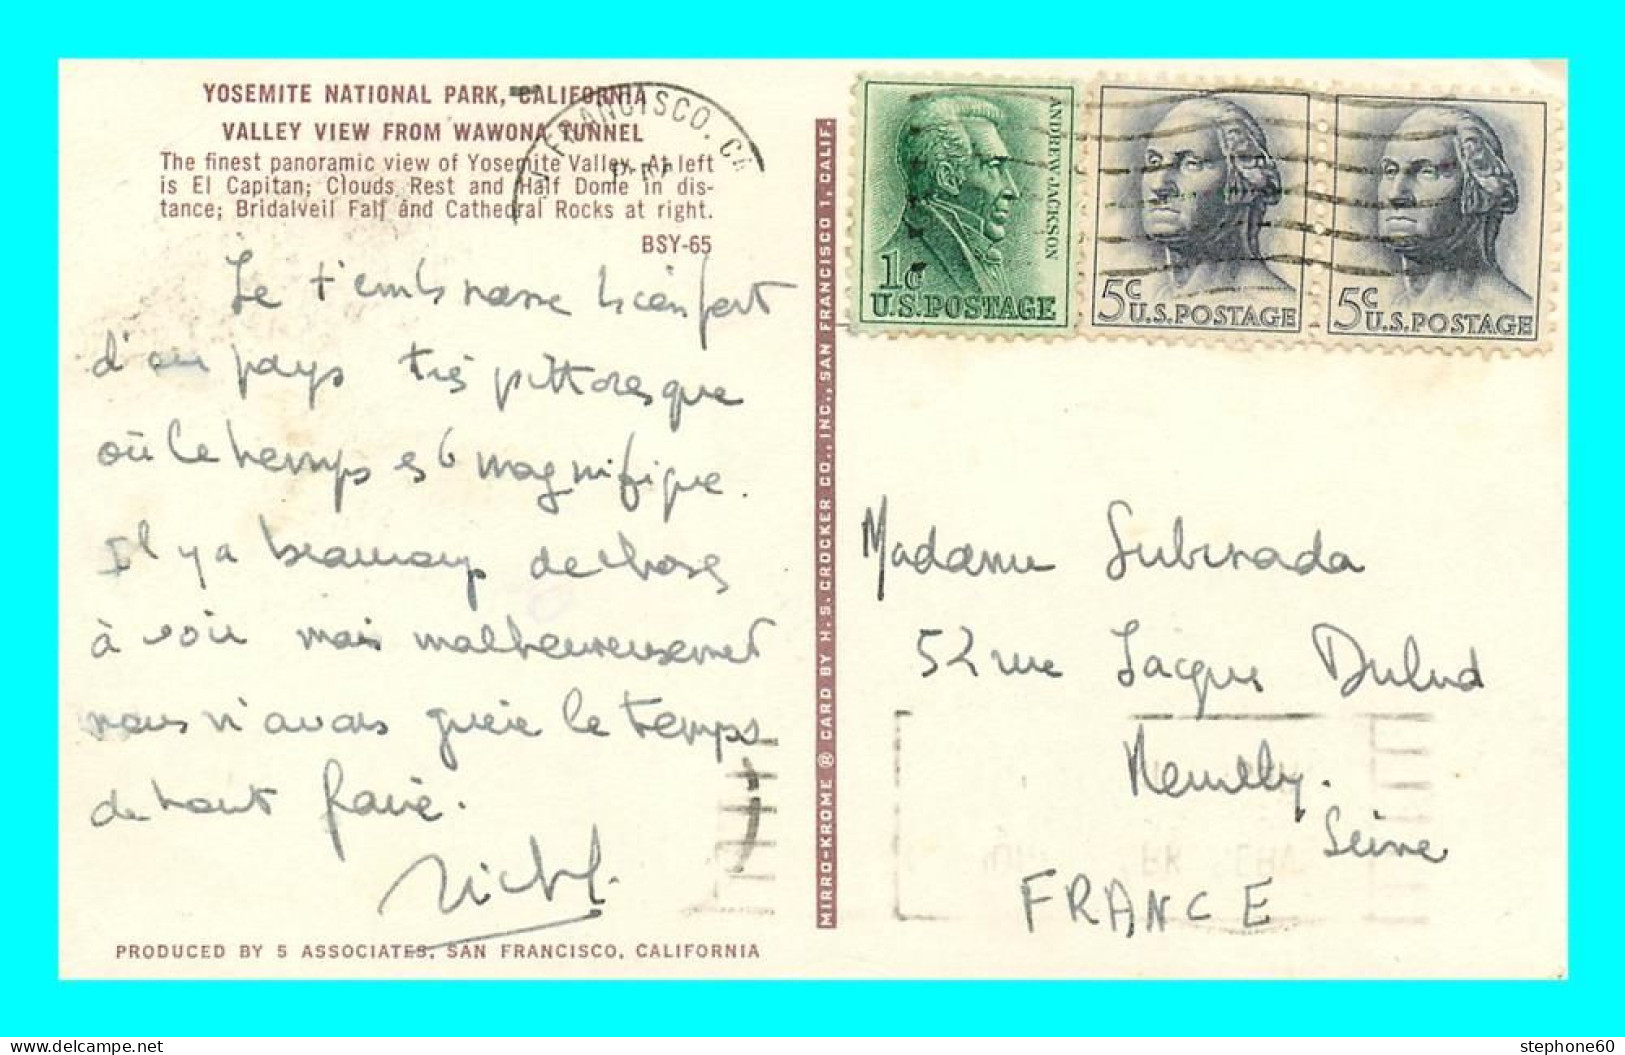 YOSEMITE NATIONAL PARK, CALIFORNIA
VALLEY VIEW FROM WAWONA TUNNEL
The finest panoramic view of Yosemite Valley. At left
is El Capitan; Clouds Rest and Half Dome in dis-
tance; Bridalveil Fall and Cathedral Rocks at right.
BSY-65
Je t'embrasse bien fort
d'un pays très pittoresque
où le temps est magnifique.
Il y a beaucoup de choses
à voir mais malheureusement
nous n'avons guère le temps
de tout faire.
Michel.
PRODUCED BY 5 ASSOCIATES, SAN FRANCISCO, CALIFORNIA
MIRRO-KROME ® CARD BY H. S. CROCKER CO., INC., SAN FRANCISCO 1, CALIF.
FRANCISCO, CA
ANDREW JACKSON
1c
U.S. POSTAGE
5c
U.S. POSTAGE
5c
U.S. POSTAGE
Madame
52 rue Jacques Dulud
Neuilly.
Seine
FRANCE
stephone60
www.delcampe.net